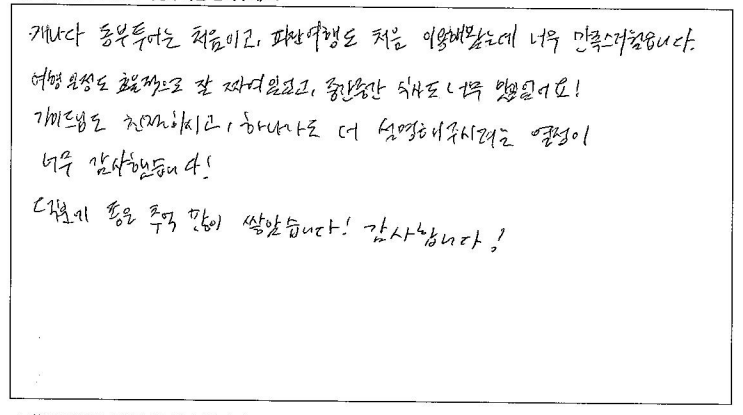 캐나다 동부투어는 처음이고, 파란여행도 처음 이용해봤는데 너무 만족스러웠습니다.
여행일정도 효율적으로 잘 짜여있었고, 중간중간 식사도 너무 맛있었어요!
가이드님도 친절하시고, 하나라도 더 설명해주시려는 열정이
너무 감사했습니다!
덕분에 좋은 추억 많이 쌓았습니다! 감사합니다!